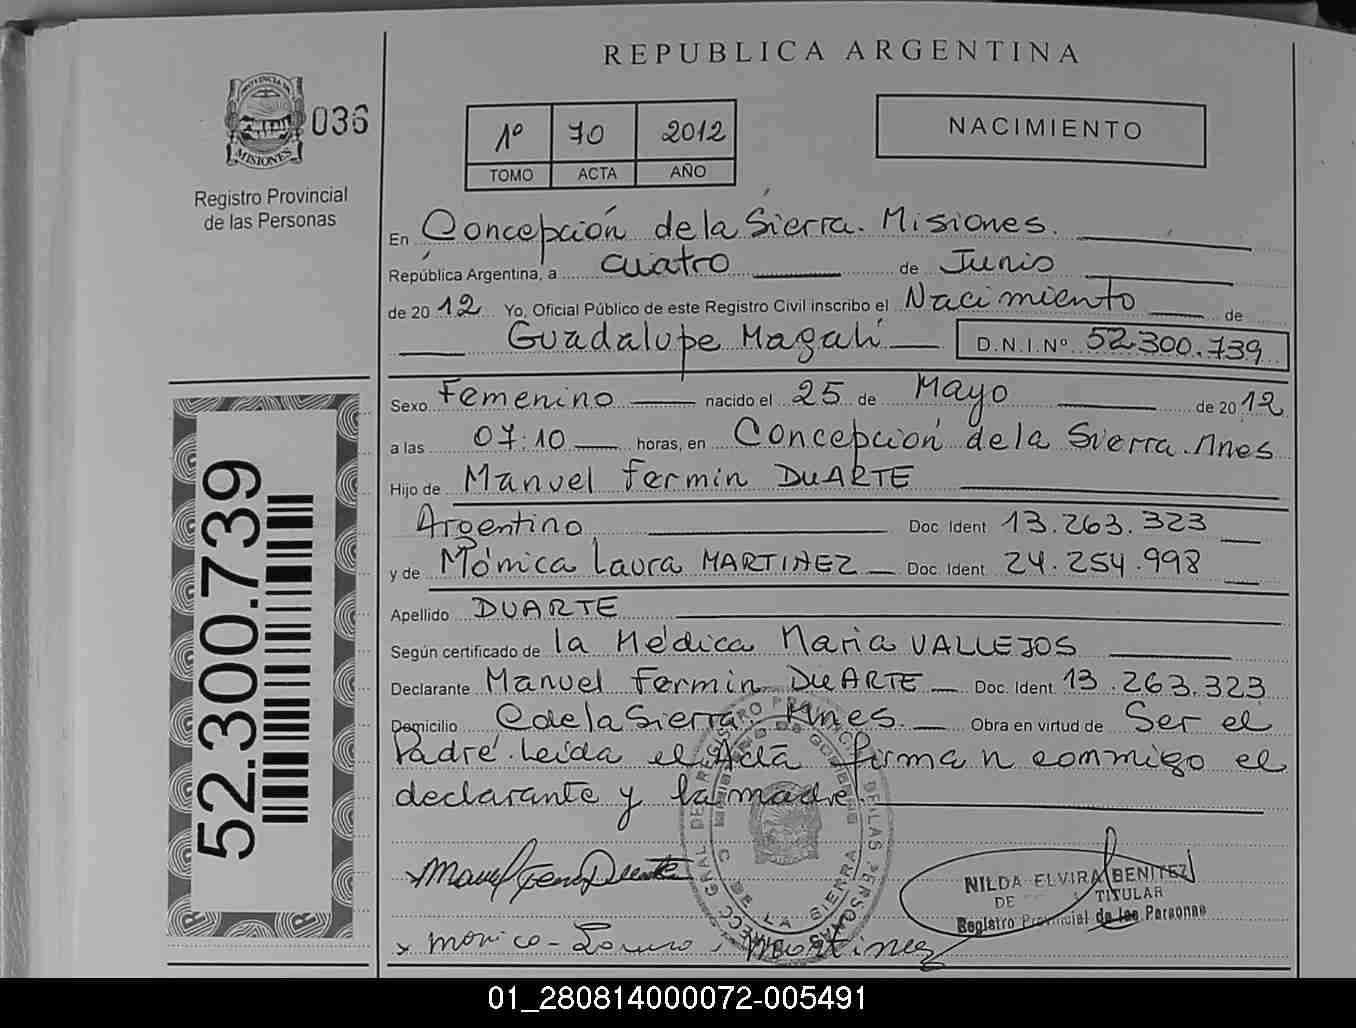 REPUBLICA ARGENTINA
PROVINCIA DE
MISIONES
036
Registro Provincial
de las Personas
1º 70 2012
TOMO ACTA AÑO
NACIMIENTO
En Concepción de la Sierra. Misiones.
República Argentina, a cuatro de Junio
de 2012 Yo, Oficial Público de este Registro Civil inscribo el Nacimiento de
Guadalupe Magalí D.N.I.Nº 52.300.739
Sexo Femenino nacido el 25 de Mayo de 2012
a las 07:10 horas, en Concepción de la Sierra. Mnes
Hijo de Manuel Fermin DUARTE
Argentino Doc. Ident 13.263.323
y de Mónica Laura MARTINEZ Doc. Ident. 24.254.998
Apellido DUARTE
Según certificado de la Médica Maria VALLEJOS
Declarante Manuel Fermin DUARTE Doc. Ident. 13.263.323
Domicilio C de la Sierra, Mnes. Obra en virtud de Ser el
Padre. Leída el Acta firman conmigo el
declarante y la madre.
52.300.739
REGISTRO PROVINCIAL DE LAS PERSONAS
MINISTERIO DE GOBIERNO
C DE LA SIERRA
Manuel Duarte
NILDA ELVIRA BENITEZ
DE TITULAR
Registro Provincial de las Personas
x monica Martinez
01_280814000072-005491